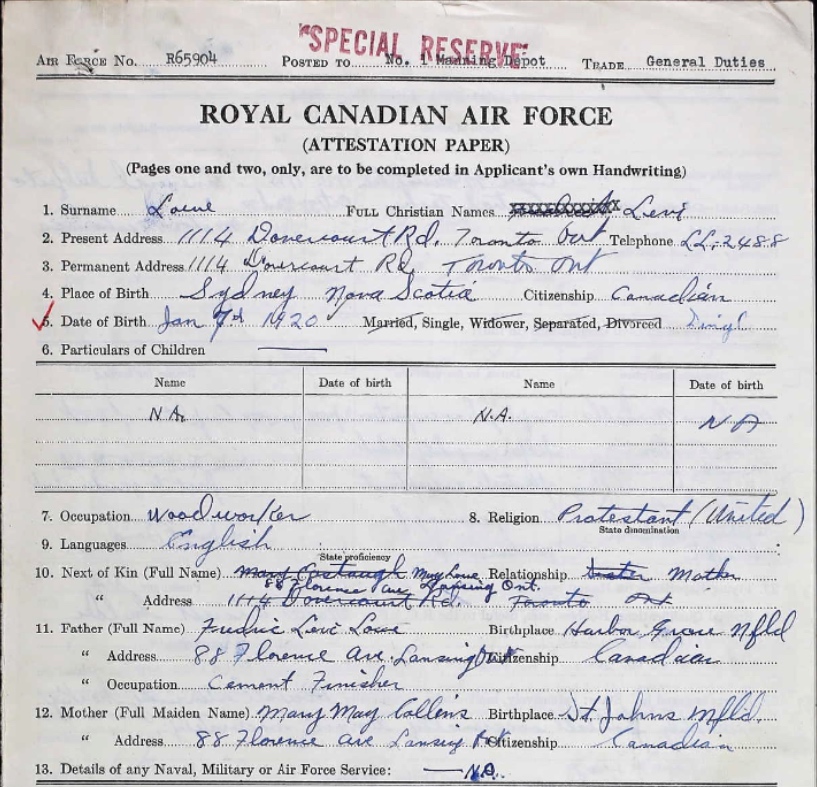 "SPECIAL RESERVE"
AIR FORCE No. R65904 POSTED TO No. 1 Manning Depot TRADE General Duties
ROYAL CANADIAN AIR FORCE
(ATTESTATION PAPER)
(Pages one and two, only, are to be completed in Applicant's own Handwriting)
1. Surname Lowe FULL Christian Names Levi
2. Present Address 1114 Dovercourt Rd. Toronto Ont Telephone LL.2488
3. Permanent Address 1114 Dovercourt Rd Toronto Ont
4. Place of Birth Sydney Nova Scotia Citizenship Canadian
5. Date of Birth Jan 7th 1920 Married, Single, Widower, Separated, Divorced
6. Particulars of Children
Name Date of birth Name Date of birth
N A. N.A. N A
7. Occupation Woodworker 8. Religion Protestant (United)
State denomination
9. Languages English
State proficiency
10. Next of Kin (Full Name) Mary May Lowe Relationship Mother
88 Florence Ave Lansing Ont.
" Address 1114 Dovercourt Rd. Toronto Ont
11. Father (Full Name) Fredric Levi Lowe Birthplace Harbor Grace Nfld
" Address 88 Florence Ave. Lansing Citizenship Canadian
" Occupation Cement Finisher
12. Mother (Full Maiden Name) Mary May Collins Birthplace St. Johns Nfld.
" Address 88 Florence Ave Lansing Citizenship Canadian
13. Details of any Naval, Military or Air Force Service: N.A.